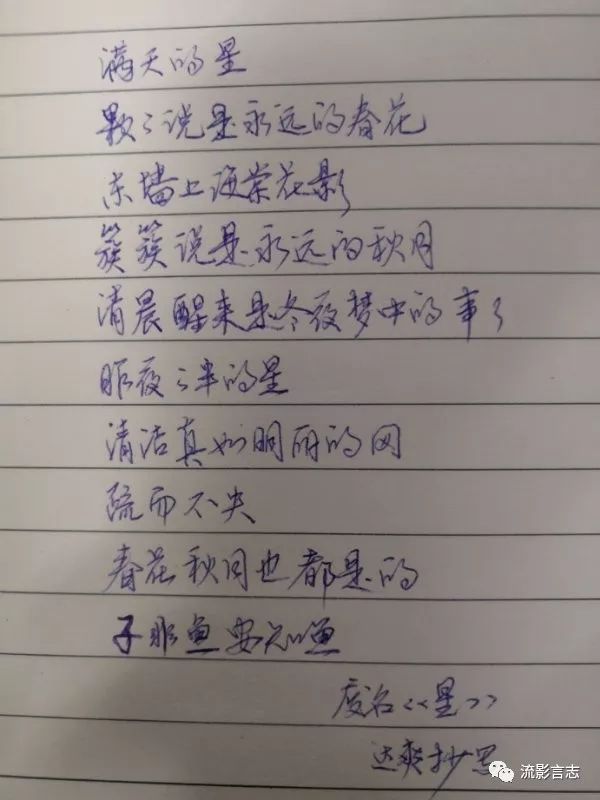 满天的星
颗々说是永远的春花
东墙上海棠花影
簇簇说是永远的秋月
清晨醒来是冬夜梦中的事了
昨夜々半的星
清洁真如明丽的网
疏而不失
春花秋月也都是的
子非鱼安知鱼
废名《星》
达爽抄写
流影言志